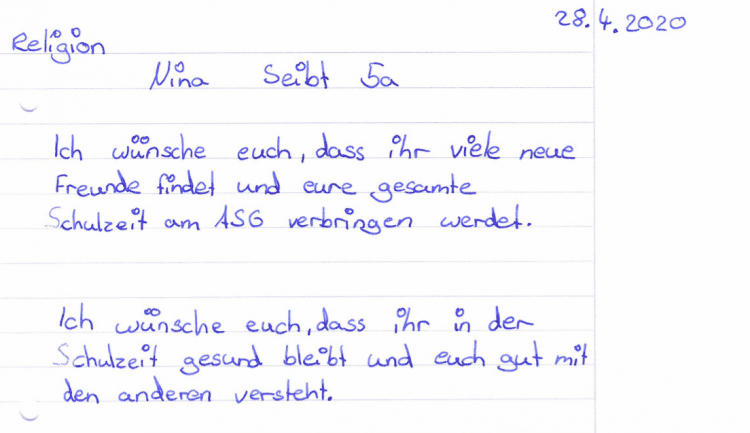 28.4.2020
Religion
Nina Seibt 5a
Ich wünsche euch, dass ihr viele neue
Freunde findet und eure gesamte
Schulzeit am ASG verbringen werdet.
Ich wünsche euch, dass ihr in der
Schulzeit gesund bleibt und euch gut mit
den anderen versteht.